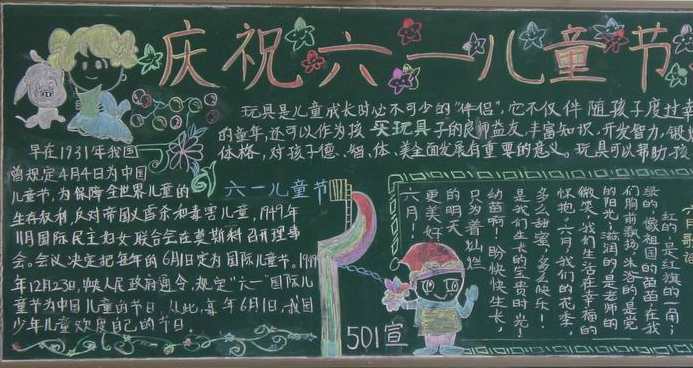 庆祝六一儿童节
玩具是儿童成长时必不可少的“伴侣”,它不仅伴随孩子度过幸
的童年,还可以作为孩 买玩具 子的良师益友,丰富知识,开发智力,锻
体格,对孩子德、智、体、美全面发展有重要的意义。玩具可以帮助孩
早在1931年我国
曾规定4月4日为中国
儿童节,为保障全世界儿童的
生存权利,反对帝国 和毒害儿童,1949年
11月国际民主妇女联合会在莫斯科召开理事
会。会议决定把每年的6月1日定为国际儿童节。19
年12月23日, 人民政府通令,规定“六一”国际儿
童节为中国儿童的节日。从此,每年6月1日,我国
少年儿童欢度自己的节日。
六一儿童节
红的是红旗的一角;
绿的像祖国的苗苗在我
们胸前飘扬沐浴的是党
的阳光滋润的是老师的
微笑,我们生活在幸福的
怀抱,六月,我们的花季,
多么甜蜜,多么快乐!
是我们人生的宝贵时光!
幼苗啊!盼快快生长,
只为着灿烂
的明天
更美好
六月!
501宣